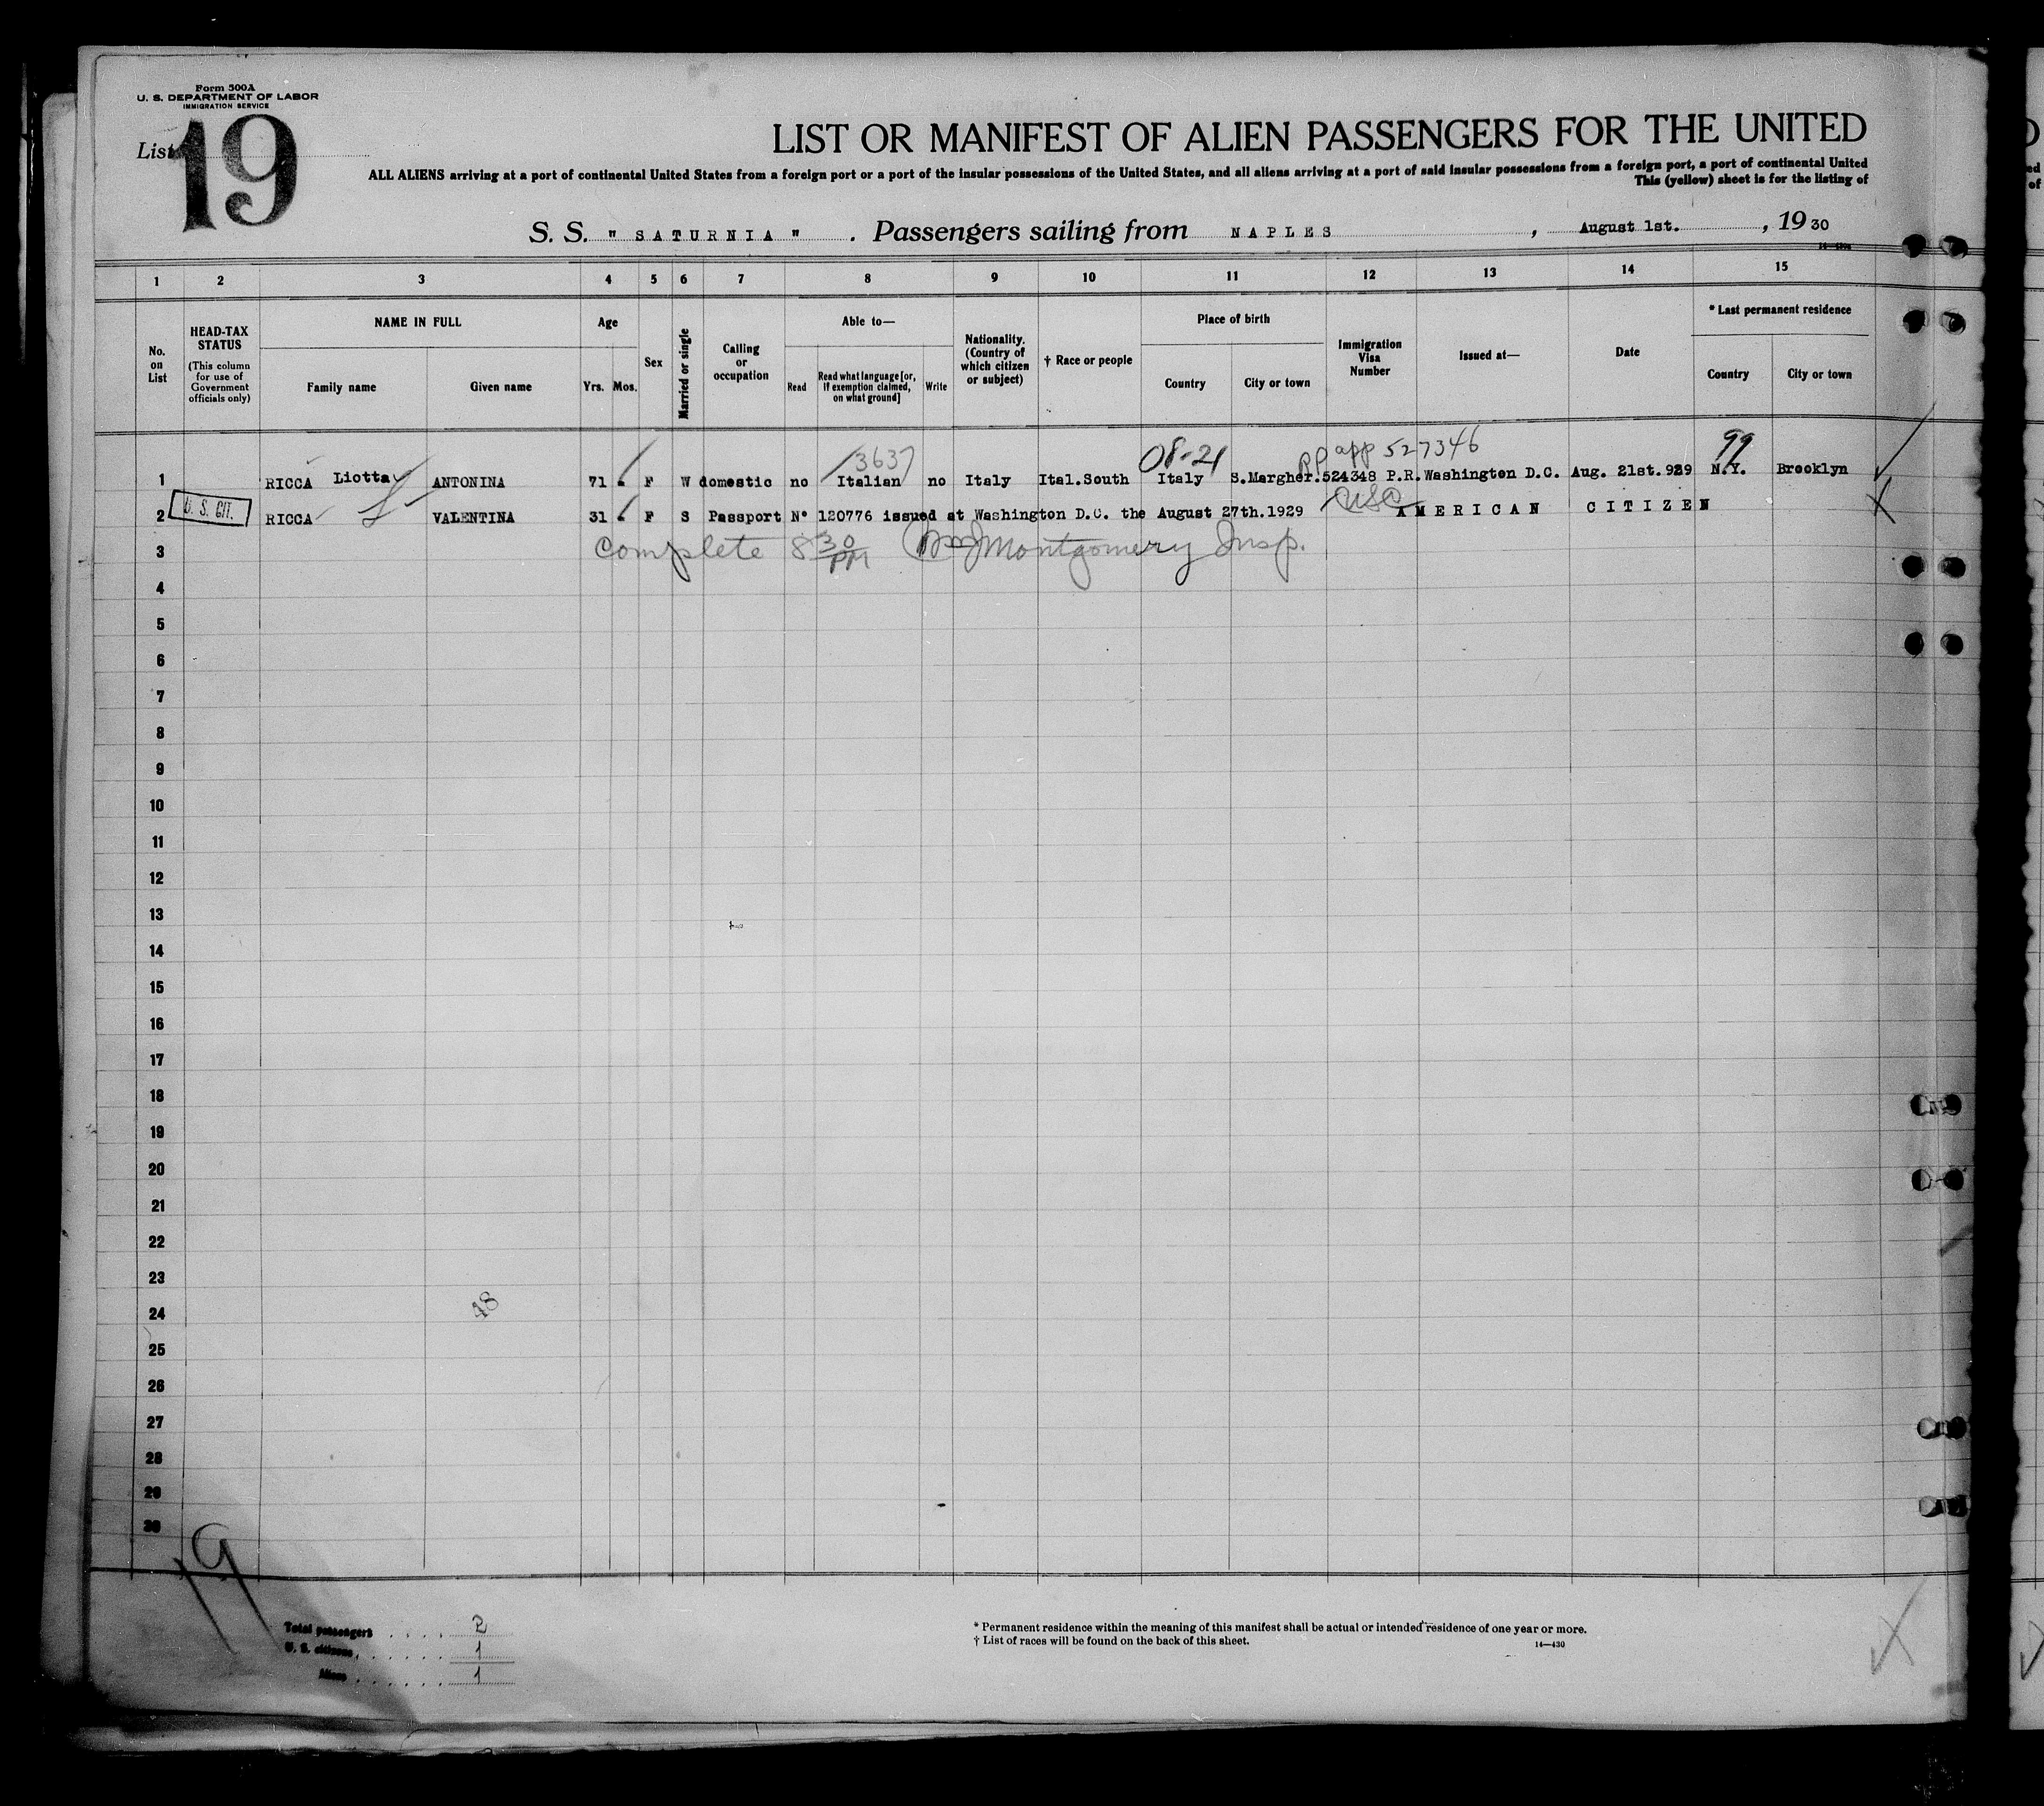 Form 500A
U. S. DEPARTMENT OF LABOR
IMMIGRATION SERVICE
List 19
LIST OR MANIFEST OF ALIEN PASSENGERS FOR THE UNITED
ALL ALIENS arriving at a port of continental United States from a foreign port or a port of the insular possessions of the United States, and all aliens arriving at a port of said insular possessions from a foreign port, a port of continental United
This (yellow) sheet is for the listing of
S. S. " SATURNIA " . Passengers sailing from NAPLES , August 1st. , 19 30
1 2 3 4 5 6 7 8 9 10 11 12 13 14 15
No. on List
HEAD-TAX STATUS (This column for use of Government officials only)
NAME IN FULL
Family name Given name
Age
Yrs. Mos.
Sex
Married or single
Calling or occupation
Able to—
Read Read what language [or, if exemption claimed, on what ground] Write
Nationality. (Country of which citizen or subject)
† Race or people
Place of birth
Country City or town
Immigration Visa Number
Issued at—
Date
* Last permanent residence
Country City or town
3637 08-21 pp app 527346 99
1 RICCA Liotta ANTONINA 71 F W domestic no Italian no Italy Ital.South Italy S.Margher. 524348 P.R. Washington D.C. Aug. 21st.929 N.Y. Brooklyn
2 U. S. CIT. RICCA VALENTINA 31 F S Passport N° 120776 issued at Washington D.C. the August 27th.1929 USC AMERICAN CITIZEN
3 Complete 8 30 PM Wm J Montgomery Insp.
4
5
6
7
8
9
10
11
12
13
14
15
16
17
18
19
20
21
22
23
24 48
25
26
27
28
29
30
19
Total passengers . . . . 2
U. S. citizens . . . . . . 1
Aliens . . . . . . 1
* Permanent residence within the meaning of this manifest shall be actual or intended residence of one year or more.
† List of races will be found on the back of this sheet.
14—430